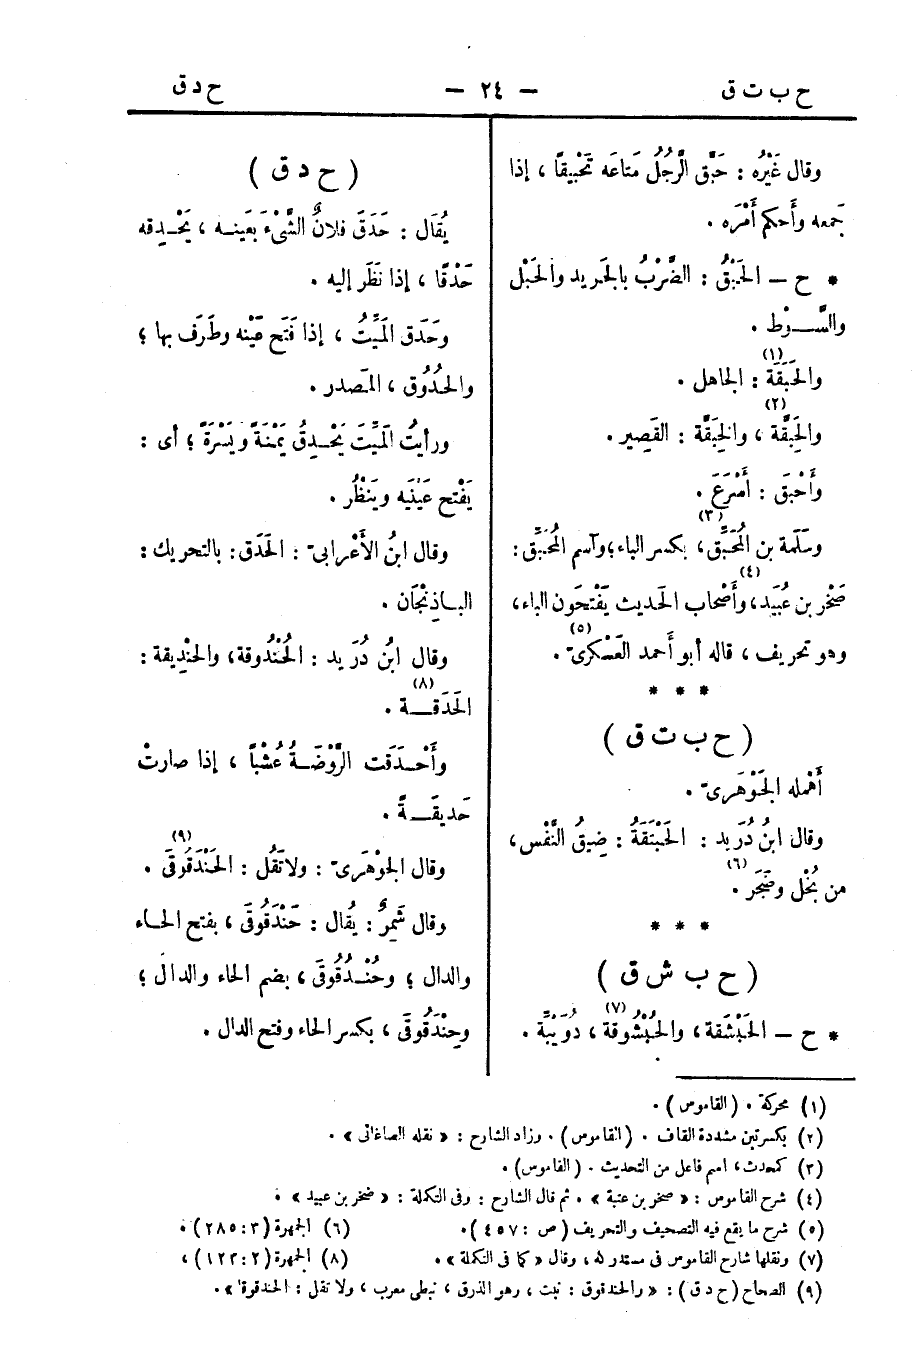 ح ب ت ق
— ٢٤ —
ح د ق
وقال غَيْرُه : حَبَّق الرَّجُلُ مَتاعَه تَحْبيقًا ، إذا
جَمعه وأَحكم أَمْرَه .
* ح – الحَبْقُ : الضَّرْبُ بالجَريد والحَبْل
والسَّوْط .
والحَبَقَة (١) : الجاهل .
والحِبِقَّة (٢) ، والحِبَقَّة : القَصِير .
وأَحْبَق : أَسْرَعَ .
وسَلَمة بن المُحَبِّق (٣) ، بكسر الباء ؛ وآسم المُحَبِّق :
صَخْر بن عُبَيد (٤) ، وأَصْحاب الحَديث يَفْتَحُون الباء ،
وهو تحريف ، قاله أبو أَحمد العَسْكَرىّ (٥) .
* * *
( ح ب ت ق )
أَهْمله الجَوْهَرىّ .
وقال ابنُ دُرَيد : الحَبْتَقَةُ : ضِيقُ النَّفْس ،
من بُخْل وضَجَر (٦) .
* * *
( ح ب ش ق )
* ح – الحَبْشَقة ، والحُبْشُوقة (٧) ، دُوَيْبَّة .
( ح د ق )
يُقَال : حَدَقَ فلانٌ الشَّىْءَ بَعَينه ، يَحْدِقه
حَدْقًا ، إذا نَظَر إليه .
وحَدَق المَيِّتُ ، إذا فَتَح عَيْنه وطَرَف بها ؛
والحُدُوق ، المَصدر .
ورأيتُ المَيِّتَ يَحْدِقُ يَمْنَةً ويَسْرَةً ؛ أى :
يَفْتح عَيْنيه ويَنظُر .
وقال ابنُ الأَعْرابىّ : الحَدَق : بالتحريك :
الباذِنْجَان .
وقال ابنُ دُرَيد : الحُنْدُوقة ، والحِنْدِيقة :
الحَدَقة (٨) .
وأَحْدَقت الرَّوْضَةُ عُشْبًا ، إذا صارتْ
حَديقَةً .
وقال الجَوْهَرىّ : ولا تَقُل : الحَنْدَقُوقَى (٩) .
وقال شَمِرٌ : يُقال : حَنْدَقُوقَى ، بفتح الحاء
والدال ؛ وحُنْدُقُوقَى ، بضم الحاء والدال ؛
وحِنْدَقُوقَى ، بكسر الحاء وفتح الدال .
(١) محركة . (القاموس) .
(٢) بكسرتين مشددة القاف . (القاموس) . وزاد الشارح : « نقله الصاغانى » .
(٣) كمحدث ، اسم فاعل من التحديث . (القاموس) .
(٤) شرح القاموس : « صخر بن عتبة » . ثم قال الشارح : وفى التكملة : « صخر بن عبيد » .
(٥) شرح ما يقع فيه التصحيف والتحريف (ص : ٤٥٧) .
(٦) الجمهرة (٣ : ٢٨٥) .
(٧) ونقلها شارح القاموس فى مستدركه ، وقال « كما فى التكملة » .
(٨) الجمهرة (٢ : ١٢٣) ،
(٩) الصحاح (ح د ق) : « والحندقوق : نبت ، وهو الذرق ، نبطى معرب ، ولا تقل : الحندقوقا » .